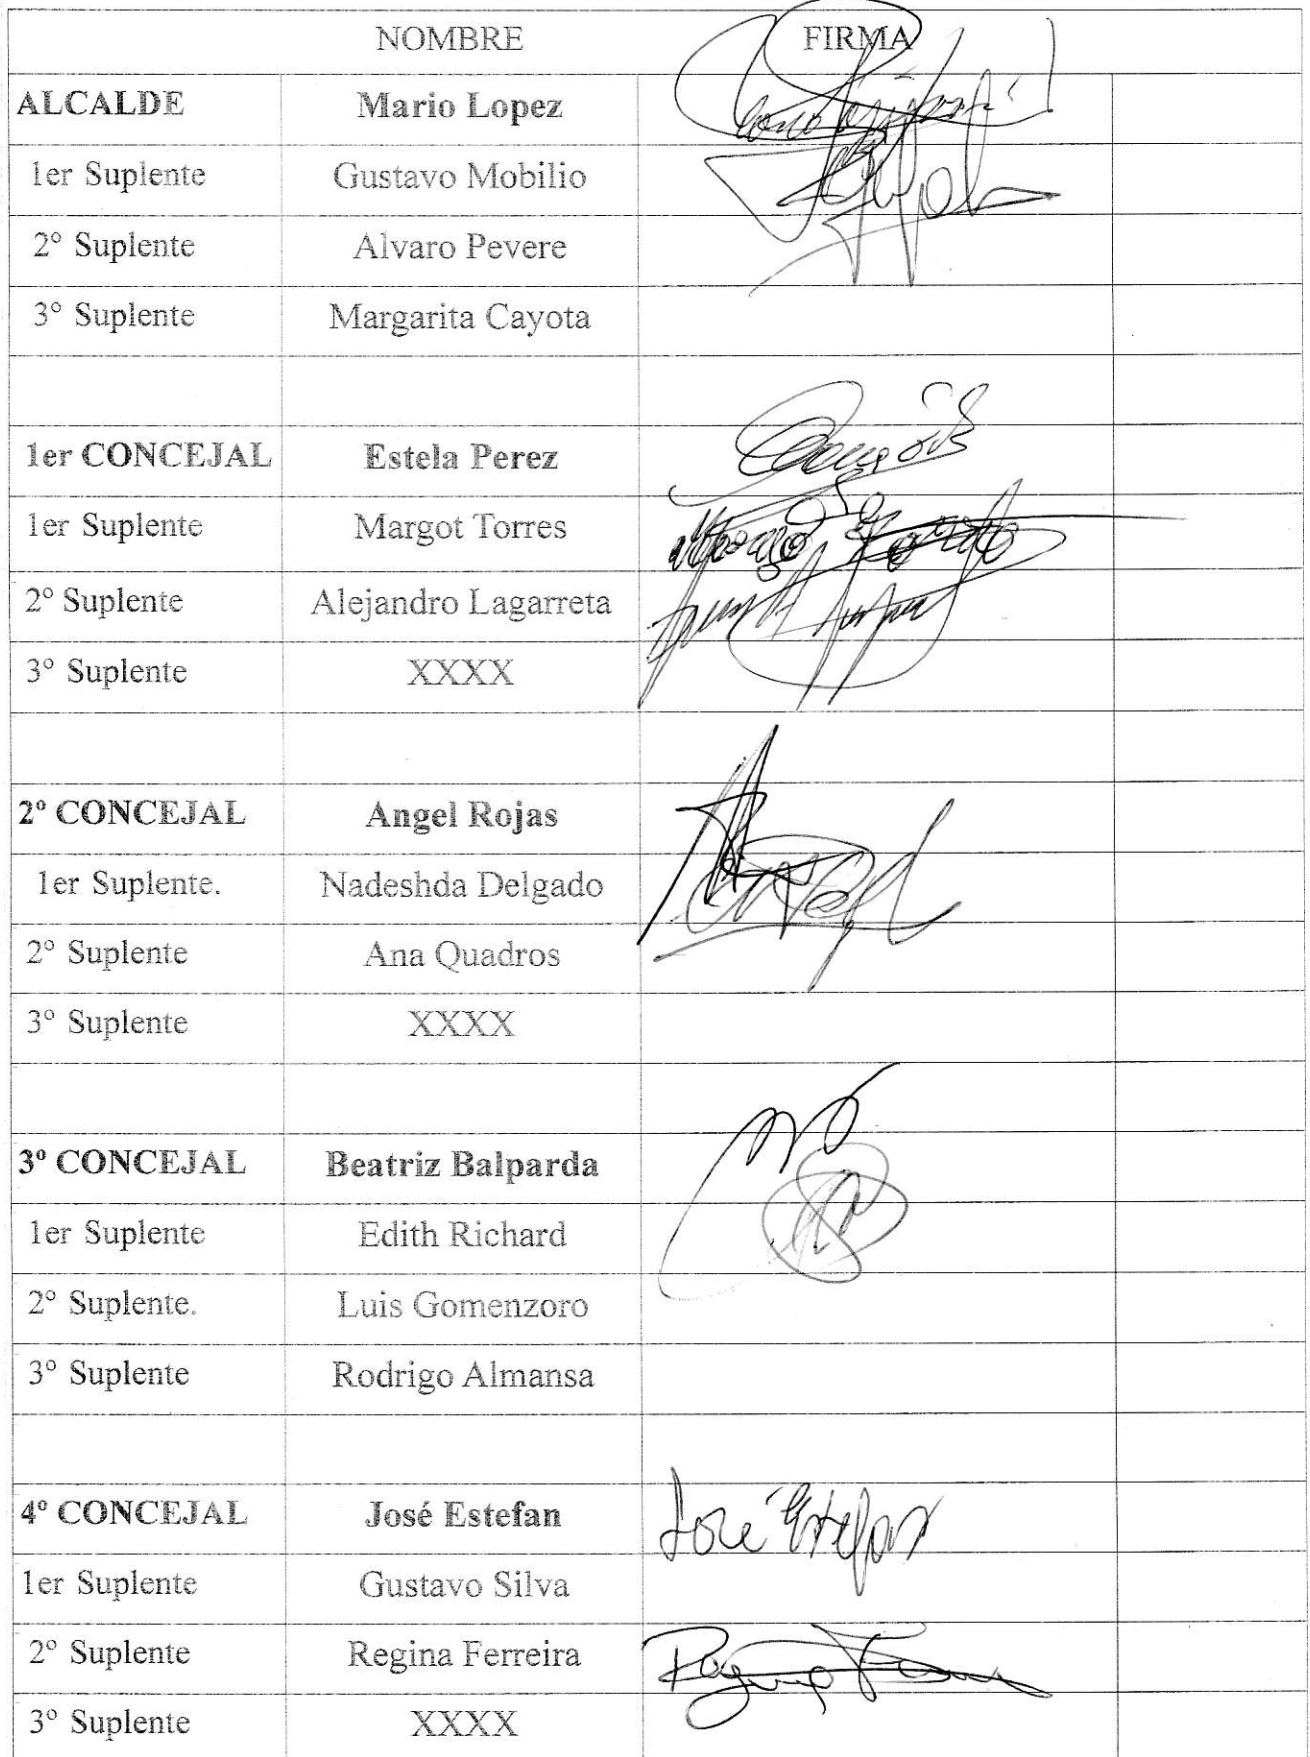 NOMBRE FIRMA
ALCALDE Mario Lopez
1er Suplente Gustavo Mobilio
2° Suplente Alvaro Pevere
3° Suplente Margarita Cayota
1er CONCEJAL Estela Perez
1er Suplente Margot Torres
2° Suplente Alejandro Lagarreta
3° Suplente XXXX
2º CONCEJAL Angel Rojas
1er Suplente. Nadeshda Delgado
2° Suplente Ana Quadros
3° Suplente XXXX
3º CONCEJAL Beatriz Balparda
1er Suplente Edith Richard
2° Suplente. Luis Gomenzoro
3° Suplente Rodrigo Almansa
4º CONCEJAL José Estefan José Estefan
1er Suplente Gustavo Silva
2° Suplente Regina Ferreira
3° Suplente XXXX